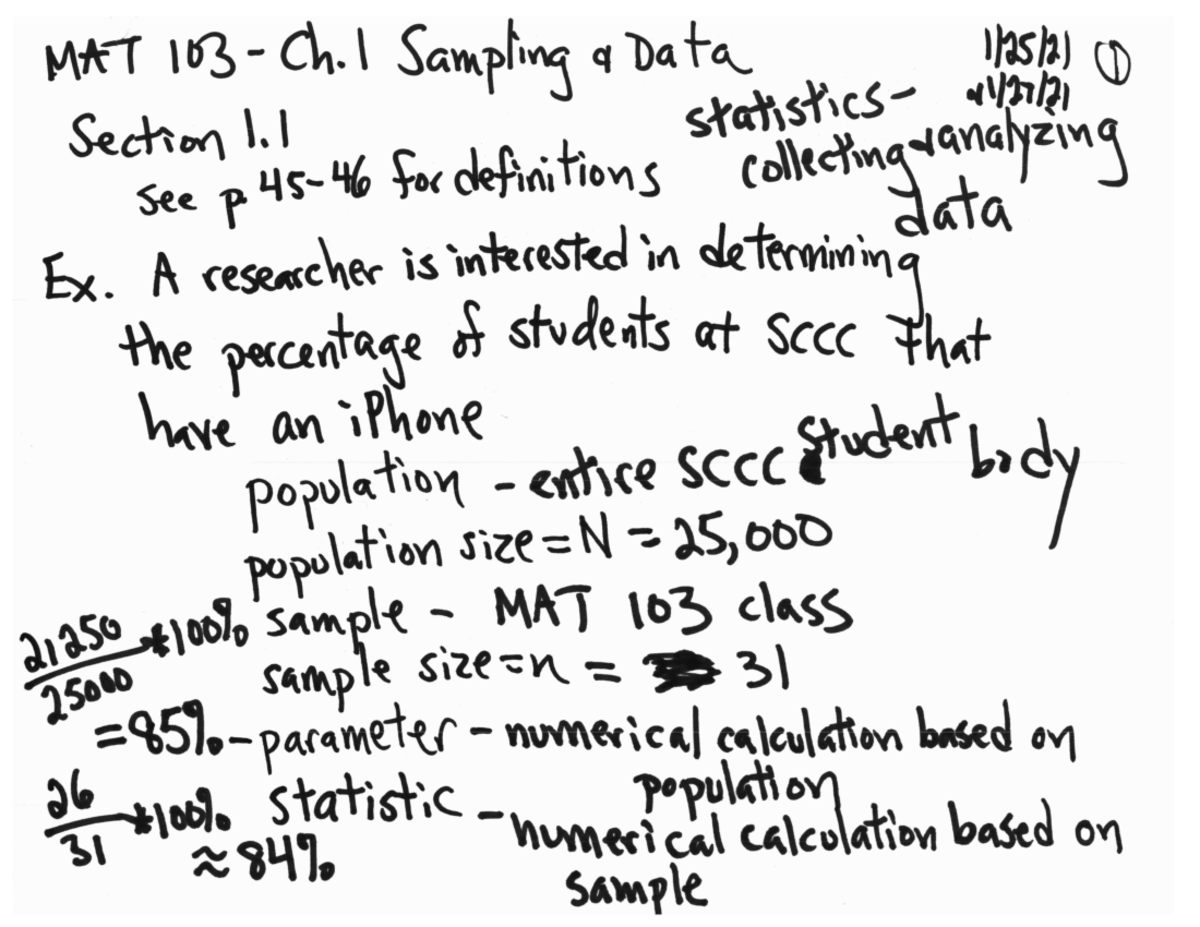 MAT 103 - Ch. 1 Sampling & Data
1/25/21 ①
& 1/27/21
Section 1.1
see p. 45-46 for definitions
statistics -
collecting & analyzing
data
Ex. A researcher is interested in determining
the percentage of students at SCCC that
have an iPhone
population - entire SCCC student body
population size = N = 25,000
sample - MAT 103 class
sample size = n = 31
21250/25000 *100%
= 85% - parameter - numerical calculation based on
population
26/31 *100%
≈ 84%
statistic - numerical calculation based on
sample